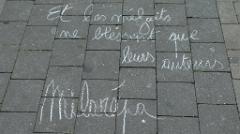 Et les mégots
ne blessent que
leurs auteurs
Milarépa